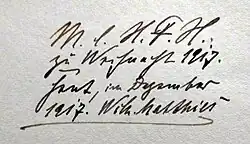 M. l. H. F. H.
zu Weihnacht 1917.
im Dezember
1917. Wilh. Matthies